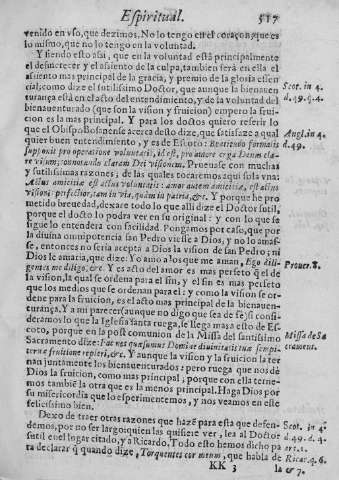 Espiritual. 517
tenido en vso, que dezimos. No lo tengo en el coraçon, que es
lo mismo, que no lo tengo en la voluntad.
Y siendo esto assi, que en la voluntad está principalmente
el desmerecer y el assiento de la culpa, tambien será en ella el
assiento mas principal de la gracia, y premio de la gloria essen-
cial; como dize el sutilissimo Doctor, que aunque la bienauen
turança está en el acto del entendimiento, y de la voluntad del
bienauenturado (que son la vision y fruicion) empero la frui-
cion es la mas principal. Y para los doctos quiero referir lo
que el Obispo Bosanense acerca desto dize, que satisfaze a qual
quier buen entendimiento, y es de Escoto: Beatitudo formalis
supponit pro operatione voluntatis, id est, pro amore erga Deum cla-
re visum; connotando claram Dei visionem. Prueuase con muchas
y sutilissimas razones; de las quales tocaremos aqui sola vna:
Actus amicitiæ est actus voluntatis: amor autem amicitiæ, est actus
visioni perfectior, tam in via, quàm in patria, &c. Y porque he pro
metido breuedad, dexaré todo lo que alli dize el Doctor sutil,
porque el docto lo podra ver en su original: y con lo que se
sigue lo entendera con facilidad. Pongamos por caso, que por
la diuina omnipotencia san Pedro viesse a Dios, y no lo amas-
se, entonces no seria acepta a Dios la vision de san Pedro; ni
Dios le amaria, que dize: Yo amo a los que me aman, Ego dili-
gentes me diligo, &c. Y es acto del amor es mas perfeto q̃ el de
la vision, la qual se ordena para el sin, y el fin es mas perfeto
que los medios que se ordenan para el: y como la vision se or-
dene para la fruicion, es el acto mas principal de la bienauen-
turança. Y a mi parecer (aunque no digo que sea de fe) si consi-
deramos lo que la Iglesia Santa ruega, se llega mas a esto de Es-
coto, porque en la postcomunion de la Missa del santissimo
Sacramento dize: Fac nos quæsumus Domine diuinitatis tuæ sempi-
terna fruitione repleri, &c. Y aunque la vision y la fruicion la ter
nan juntamente los bienauenturados: pero ruega que nos dè
Dios la fruicion, como mas principal, porque con ella terne-
mos tambié la otra que es la menos principal. Haga Dios por
su misericordia que lo esperimentemos, y nos veamos en este
felicissimo bien.
Dexo de traer otras razones que hazẽ para esta que defen-
demos, por no ser largo: quien las quisiere ver, lea al Doctor
sutil en el lugar citado, y a Ricardo. Todo esto hemos dicho pa
ra declarar q̃ quando dize, Torquentes cor meum, que habla de
KK 3 la
Scot. in 4.
d. 49. q. 4.
Angl. in 4.
d. 49.
Prouer. 8.
Missa de Sa
cramento.
Scot. in 4.
d. 49. q. 4.
art. 1.
Ricar. q. 6.
& 7.